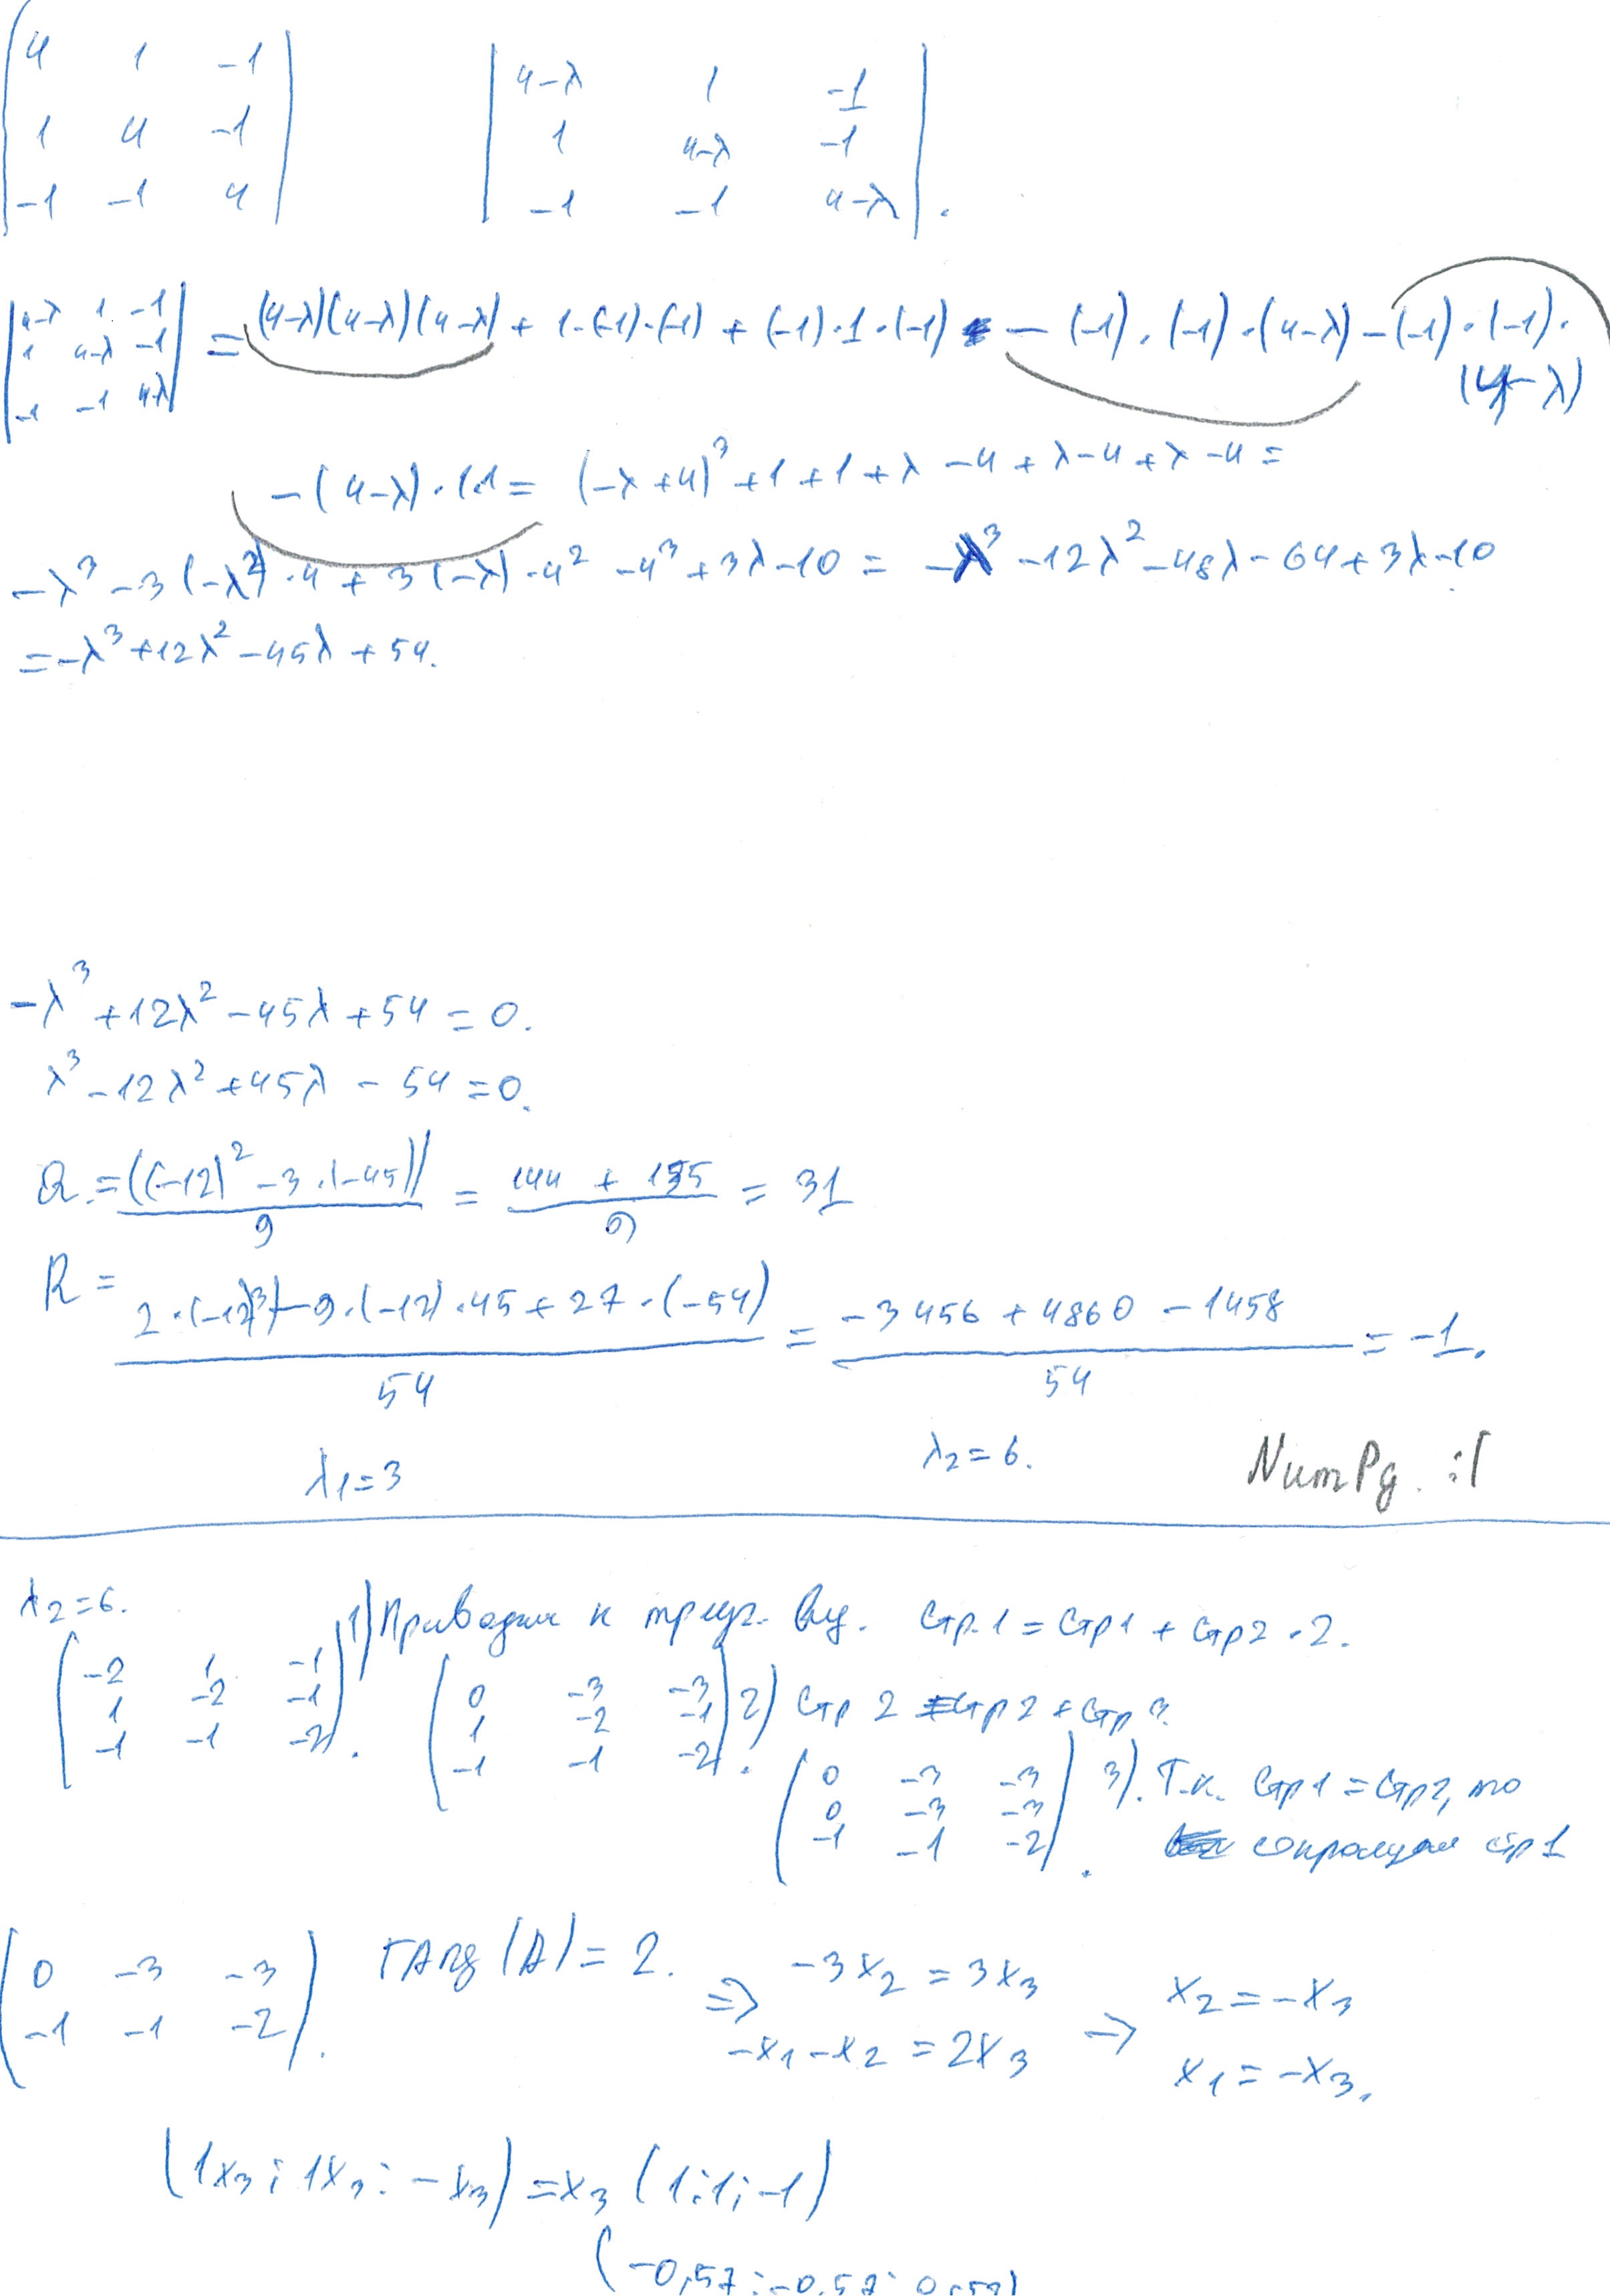 4 1 -1
1 4 -1
-1 -1 4
4-λ 1 -1
1 4-λ -1
-1 -1 4-λ .
|4-λ 1 -1|
|1 4-λ -1| = (4-λ)(4-λ)(4-λ) + 1·(-1)·(-1) + (-1)·1·(-1) - (-1)·(-1)·(4-λ) - (-1)·(-1)·
|-1 -1 4-λ| (4-λ)
-(4-λ)·1·1 = (-λ+4)³ +1+1+λ-4+λ-4+λ-4 =
-λ³ -3(-λ²)·4 + 3(-λ)·4² -4³ +3λ-10 = -λ³ -12λ² -48λ-64+3λ-10
= -λ³+12λ²-45λ+54.
-λ³+12λ²-45λ+54=0.
λ³-12λ²+45λ-54=0.
Q = ((-12)²-3·(-45))/9 = (144+135)/9 = 31
R = (2·(-12³)-9·(-12)·45+27·(-54))/54 = (-3456+4860-1458)/54 = -1.
λ1=3 λ2=6. NumPg. :1
λ2=6. 1) Приводим к треуг. виду. Стр.1 = Стр1 + Стр2·2.
(-2 1 -1)
(1 -2 -1)
(-1 -1 -2).
(0 -3 -3)
(1 -2 -1)
(-1 -1 -2).
2) Стр 2 = Стр 2 + Стр 3.
(0 -3 -3)
(0 -3 -3)
(-1 -1 -2).
3). Т.к. Стр1 = Стр2, то
сокращаем стр1
(0 -3 -3)
(-1 -1 -2).
rang (A) = 2. => -3x2 = 3x3
-x1-x2 = 2x3
-> x2 = -x3
x1 = -x3.
(1x3; 1x3; -x3) = x3 (1; 1; -1)
(-0,57; -0,57; 0,57)